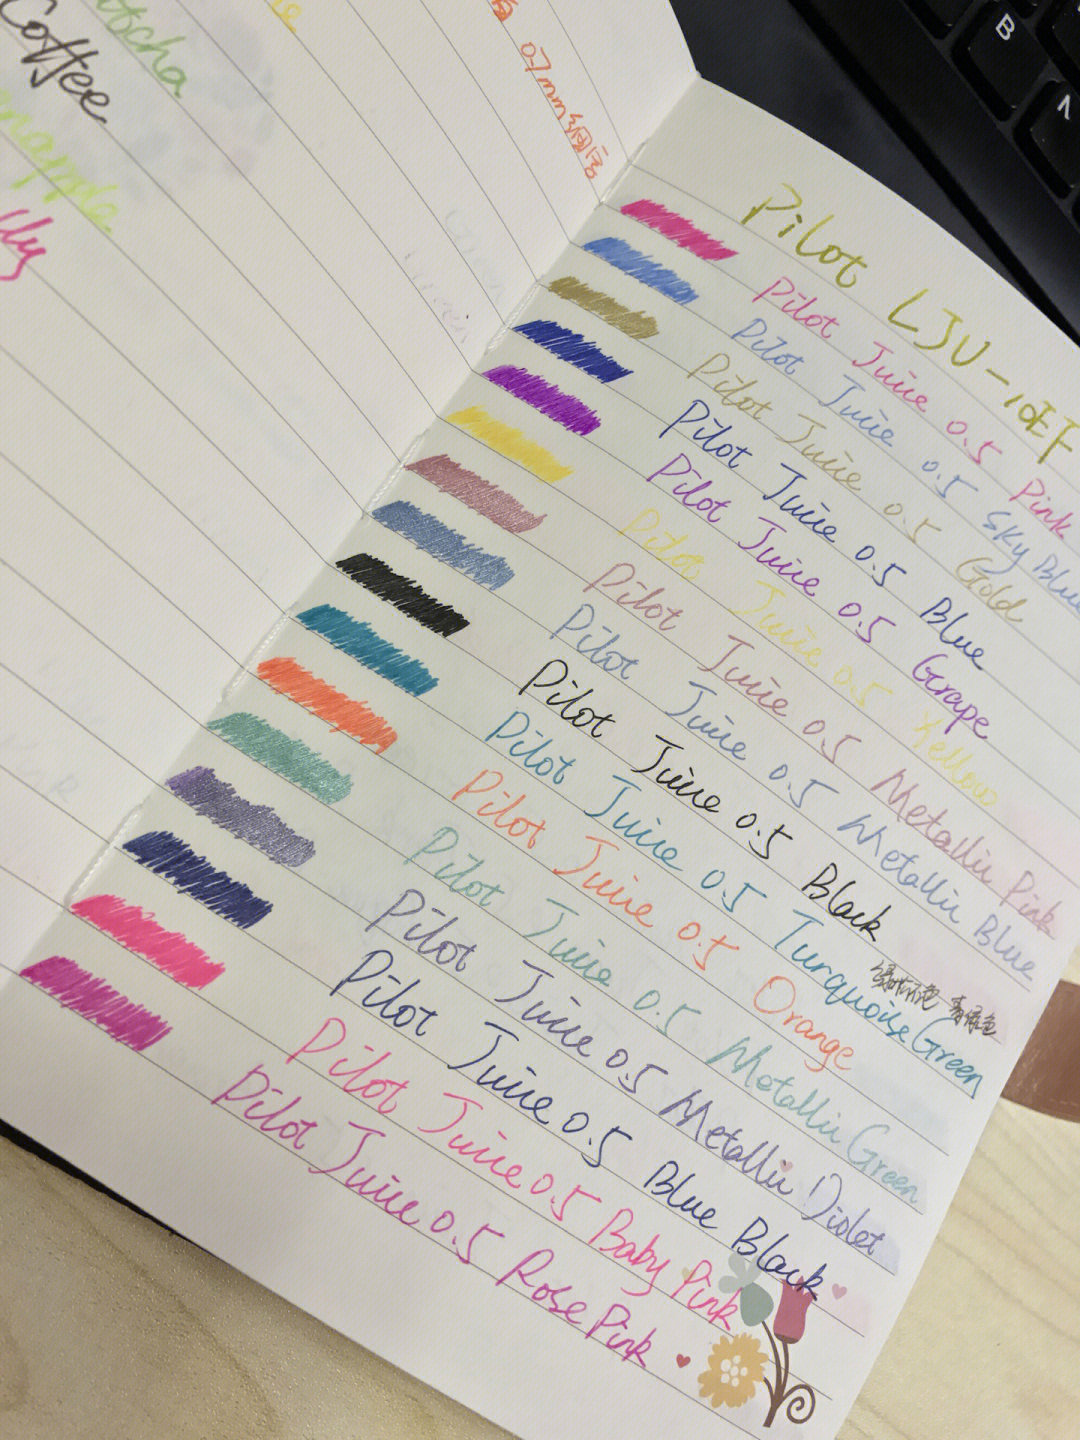 Coffee
0.7mm
Pilot LJU-10EF
Pilot Juice 0.5 Pink
Pilot Juice 0.5 Sky Blue
Pilot Juice 0.5 Gold
Pilot Juice 0.5 Blue
Pilot Juice 0.5 Grape
Pilot Juice 0.5 Yellow
Pilot Juice 0.5 Metallic Pink
Pilot Juice 0.5 Metallic Blue
Pilot Juice 0.5 Black
Pilot Juice 0.5 Turquoise Green
青绿色
Pilot Juice 0.5 Orange
Pilot Juice 0.5 Metallic Green
Pilot Juice 0.5 Metallic Violet
Pilot Juice 0.5 Blue Black
Pilot Juice 0.5 Baby Pink
Pilot Juice 0.5 Rose Pink
B